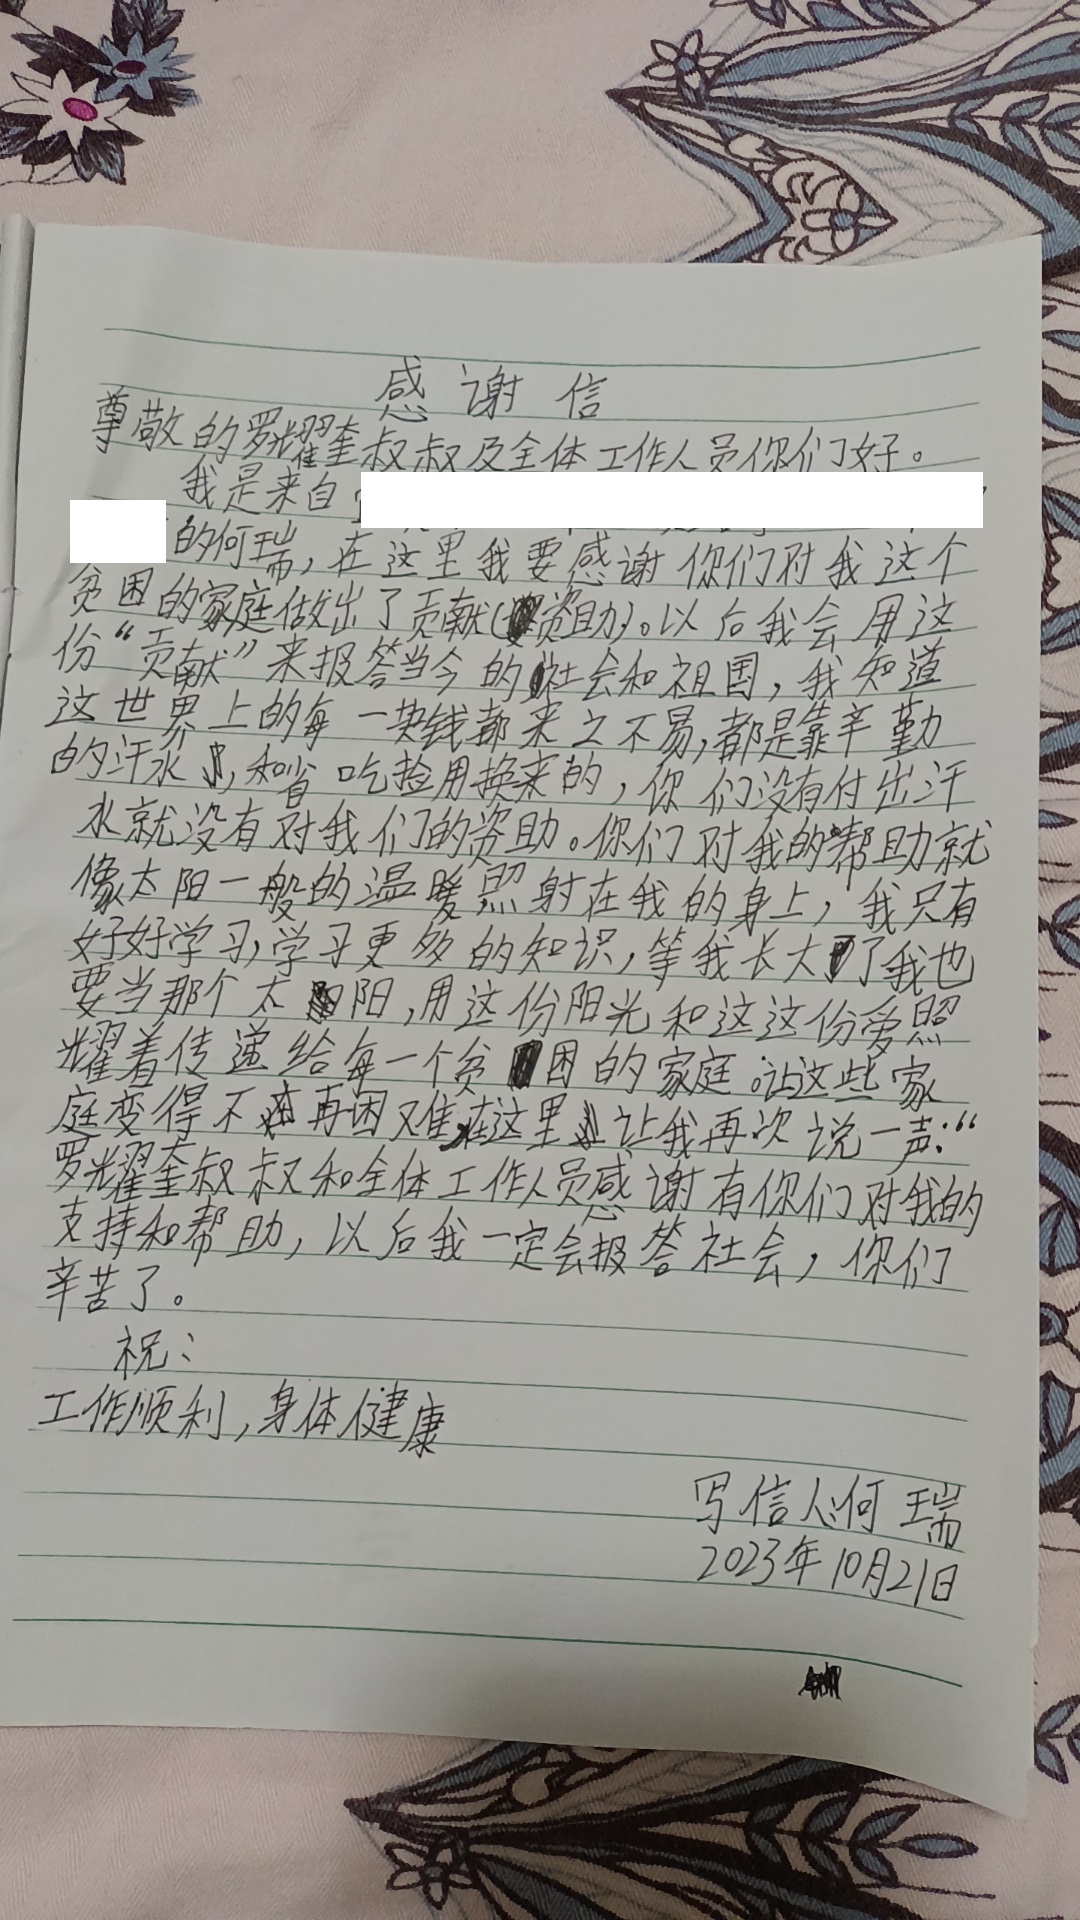 感谢信
尊敬的罗耀奎叔叔及全体工作人员你们好。
我是来自
的何瑞，在这里我要感谢你们对我这个
贫困的家庭做出了贡献(资助)。以后我会用这
份“贡献”来报答当今的社会和祖国，我知道
这世界上的每一块钱都来之不易，都是靠辛勤
的汗水，和省吃捡用换来的，你们没有付出汗
水就没有对我们的资助。你们对我的帮助就
像太阳一般的温暖照射在我的身上，我只有
好好学习，学习更多的知识，等我长大了我也
要当那个太阳，用这份阳光和这这份爱照
耀着传递给每一个贫困的家庭。让这些家
庭变得不再困难，在这里让我再次说一声：“
罗耀奎叔叔和全体工作人员感谢有你们对我的
支持和帮助，以后我一定会报答社会，你们
辛苦了。
祝：
工作顺利，身体健康
写信人：何瑞
2023年10月21日